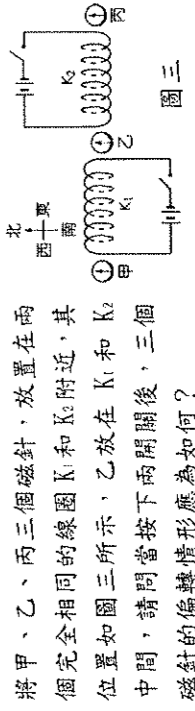 將甲、乙、丙三個磁針，放置在兩
個完全相同的線圈K₁和K₂附近，其
位置如圖三所示，乙放在 K₁ 和 K₂
中間，請問當按下兩開關後，三個
磁針的偏轉情形應為如何？
北
西 東
南
甲
K₁
乙
K₂
丙
圖三